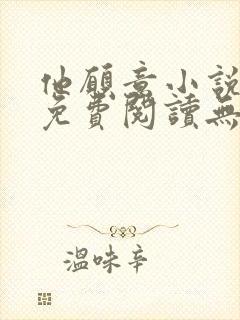 他願意小說
免費閱讀無
溫味辛